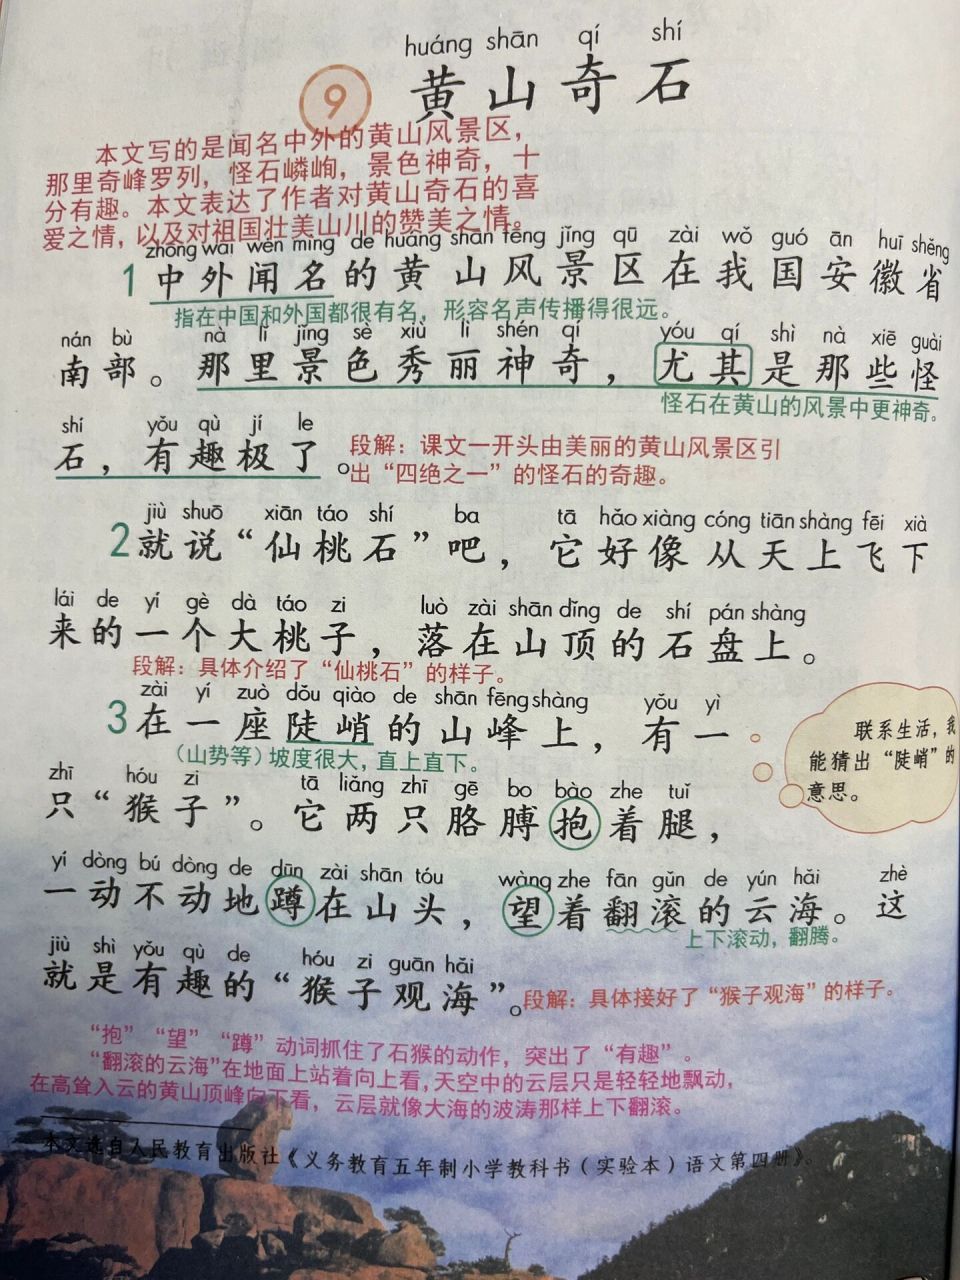 huáng shān qí shí
9 黄山奇石
本文写的是闻名中外的黄山风景区，
那里奇峰罗列，怪石嶙峋，景色神奇，十
分有趣。本文表达了作者对黄山奇石的喜
爱之情，以及对祖国壮美山川的赞美之情。
zhōng wài wén míng de huáng shān fēng jǐng qū zài wǒ guó ān huī shěng
1 中外闻名的黄山风景区在我国安徽省
指在中国和外国都很有名，形容名声传播得很远。
nán bù nà lǐ jǐng sè xiù lì shén qí yóu qí shì nà xiē guài
南部。那里景色秀丽神奇，尤其是那些怪
怪石在黄山的风景中更神奇。
shí yǒu qù jí le
石，有趣极了。
段解：课文一开头由美丽的黄山风景区引
出“四绝之一”的怪石的奇趣。
jiù shuō xiān táo shí ba tā hǎo xiàng cóng tiān shàng fēi xià
2 就说“仙桃石”吧，它好像从天上飞下
lái de yí gè dà táo zi luò zài shān dǐng de shí pán shàng
来的一个大桃子，落在山顶的石盘上。
段解：具体介绍了“仙桃石”的样子。
zài yí zuò dǒu qiào de shān fēng shàng yǒu yì
3 在一座陡峭的山峰上，有一
（山势等）坡度很大，直上直下。
联系生活，我
能猜出“陡峭”的
意思。
zhī hóu zi tā liǎng zhī gē bo bào zhe tuǐ
只“猴子”。它两只胳膊抱着腿，
yí dòng bú dòng de dūn zài shān tóu wàng zhe fān gǔn de yún hǎi zhè
一动不动地蹲在山头，望着翻滚的云海。这
上下滚动，翻腾。
jiù shì yǒu qù de hóu zi guān hǎi
就是有趣的“猴子观海”。
段解：具体接好了“猴子观海”的样子。
“抱”“望”“蹲”动词抓住了石猴的动作，突出了“有趣”。
“翻滚的云海”在地面上站着向上看，天空中的云层只是轻轻地飘动，
在高耸入云的黄山顶峰向下看，云层就像大海的波涛那样上下翻滚。
本文选自人民教育出版社《义务教育五年制小学教科书（实验本）语文第四册》。